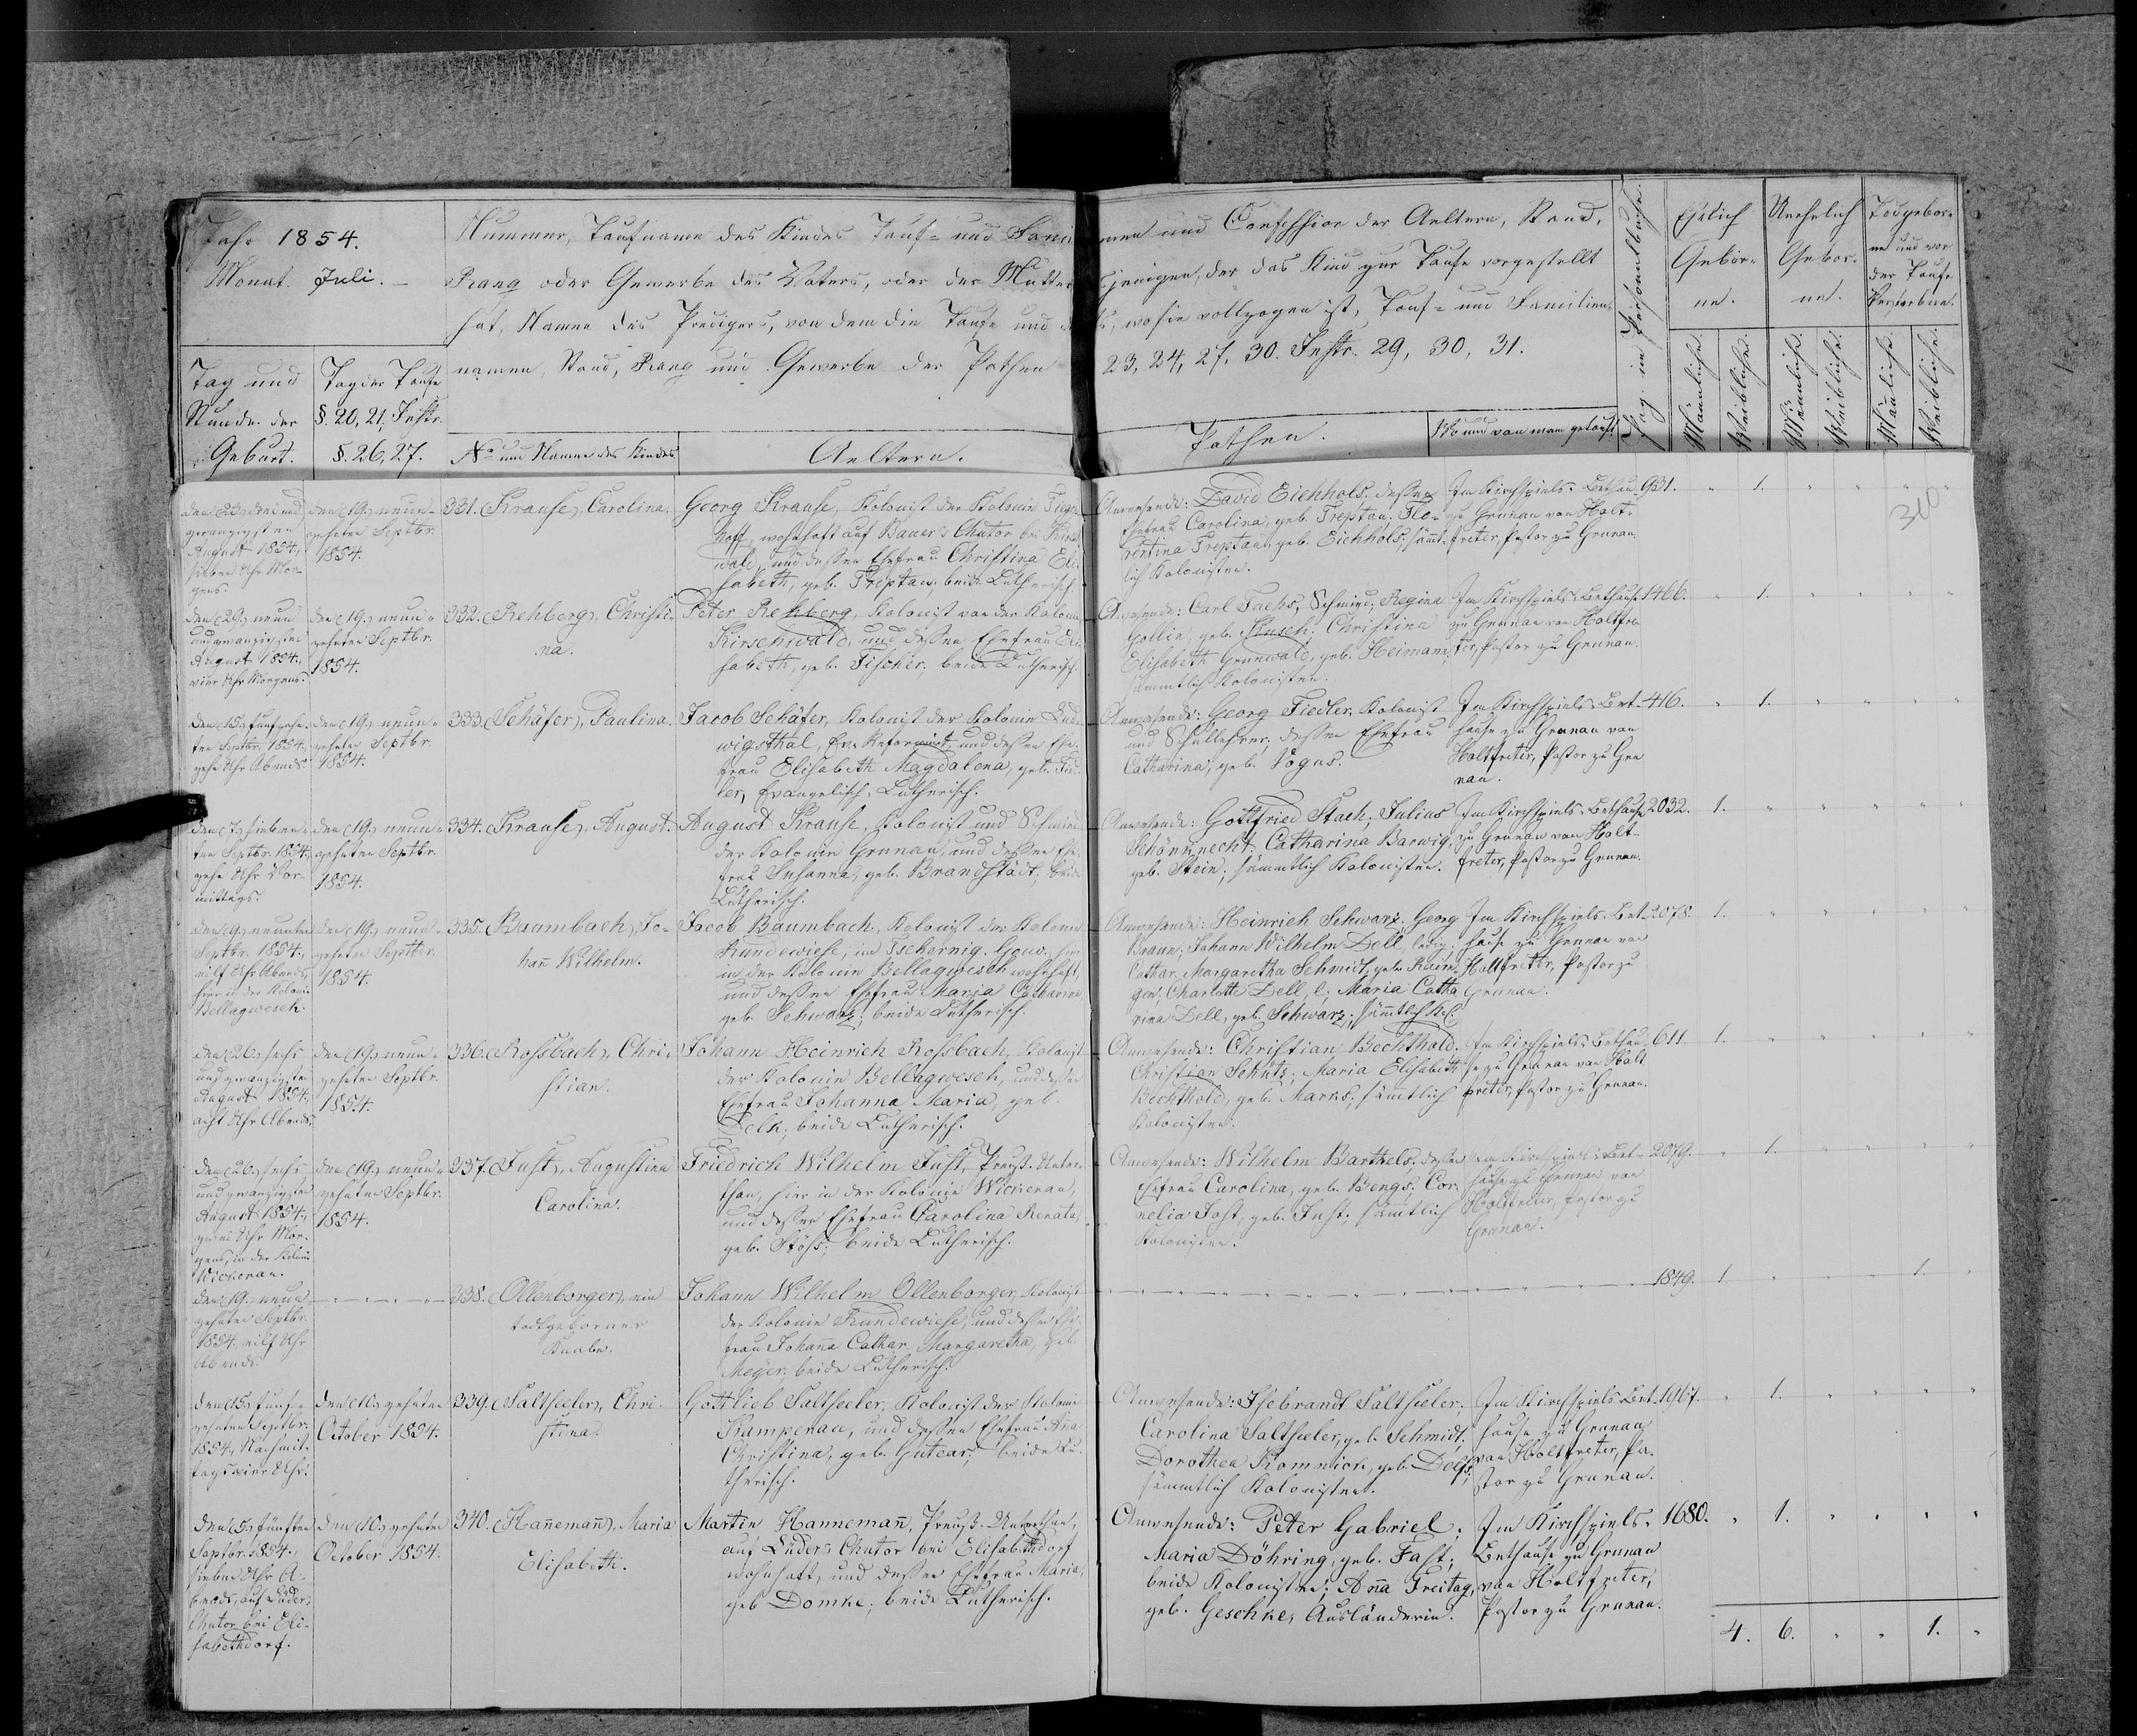 Jahr 1854.
Monat. Juli. –
Tag und
Stunde der
Geburt.
Tag der Taufe
§. 20, 21, Instr.
§. 26, 27.
Nummer, Taufname des Kindes Tauf- und Famil
Rang oder Gewerbe des Vaters, oder der Mutter
hat, Namen des Predigers, von dem die Taufe und
namen, Stand, Rang und Gewerbe der Pathen
No und Name des Kindes
Aeltern.
men und Confession der Aeltern, Stand,
jenigen, der das Kind zur Taufe vorgestellt
wo sie vollzogen ist, Tauf- und Familien
23, 24, 27, 30. Instr. 29, 30, 31.
Pathen.
Wo und von wem getauft
Pag. im Personalbuche.
Ehelich
Gebor-
ne.
Unehelich
Gebor-
ne.
Todgebor-
ne und vor
der Taufe
Verstorbne.
Männliche.
Weibliche.
Männliche.
Weibliche.
Männliche
Weibliche.
310
den (23) drei und
zwanzigsten
August 1854,
sieben Uhr Mor-
gens.
den (19) neun-
zehnten Septbr.
1854.
331. (Krause), Carolina.
Georg Krause, Kolonist der Kolonie Tiegen-
hoff, wohnhaft auf Bauer's Chutor bei Kirsch
wald, und dessen Ehefrau Christina Eli-
sabeth, geb. Treptau; beide Lutherisch.
Anwesende: David Eichholz, dessen
Ehefrau Carolina, geb. Treptau. Flo-
rentina Treptau, geb. Eichholz, sämt-
lich Kolonisten.
Im Kirchspiels-Bethau-
zu Grunau von Holt-
freter, Pastor zu Grunau.
931. " 1. " " " "
den (29) neun
und zwanzigsten
August 1854,
vier Uhr Morgens.
den (19) neun-
zehnten Septbr.
1854.
332. (Rehberg), Christi-
na.
Peter Rehberg, Kolonist von der Kolonie
Kirschwald, und dessen Ehefrau Eli-
sabeth, geb. Fischer; beide Lutherisch.
Anwesende: Carl Fuchs, Schmied; Regina
Gollin, geb. Hinsch; Christina
Elisabeth Grunwald, geb. Heimann,
sämmtlich Kolonisten.
Im Kirchspiels-Bethause
zu Grunau von Holtfre-
ter, Pastor zu Grunau.
1466. " 1. " " " "
den (15) fünfzehn-
ten Septbr. 1854,
zehn Uhr Abends.
den (19) neun-
zehnten Septbr.
1854.
333. (Schäfer), Paulina.
Jacob Schäfer, Kolonist der Kolonie Lud-
wigsthal, Ev. Reformirt, und dessen Ehe-
frau Elisabeth Magdalena, geb. Fied-
ler, Evangelisch-Lutherisch.
Anwesende: Georg Fiedler, Kolonist
und Schullehrer, dessen Ehefrau
Catharina, geb. Vogus.
Im Kirchspiels-Bet-
hause zu Grunau von
Holtfreter, Pastor zu Gru
nau.
416. " 1. " " " "
den (7) sieben-
ten Septbr. 1854,
zehn Uhr Vor-
mittags.
den (19) neun-
zehnten Septbr.
1854.
334. (Krause), August.
August Krause, Kolonist und Schmied
der Kolonie Grunau, und dessen Ehe-
frau Susanna, geb. Brandstädt; beide
Lutherisch.
Anwesende: Gottfried Stach; Julius
Schönknecht, Catharina Barwig,
geb. Stein; sämmtlich Kolonisten.
Im Kirchspiels-Bethause
zu Grunau von Holt-
freter, Pastor zu Grunau.
2032. 1. " " " " "
den (9) neunten
Septbr. 1854,
eilf Uhr Abends,
hier in der Kolonie
Bellagwesch.
den (19) neun-
zehnten Septbr.
1854.
335. Baumbach, Jo-
han̄ Wilhelm.
Jacob Baumbach, Kolonist der Kolonie
Rundewiese, im Tschernig. Gouv. hier
in der Kolonie Bellagwesch wohnhaft,
und dessen Ehefrau Maria Catharina,
geb. Schwarz; beide Lutherisch.
Anwesende: Heinrich Schwarz. Georg
Braun; Johann Wilhelm Dell, ledig;
Cathar. Margaretha Schmidt, geb. Rüin-
ger, Charlotte Dell, l; Maria Catha
rina Dell, geb. Schwarz; sämtlich Kol.
Im Kirchspiels-Bet-
hause zu Grunau von
Holtfreter, Pastor zu
Grunau.
2078. 1. " " " " "
den (26) sechs
und zwanzigsten
August 1854,
acht Uhr Abends.
den (19) neun-
zehnten Septbr.
1854.
336. (Rossbach), Chri-
stian.
Johann Heinrich Rossbach, Kolonist
der Kolonie Bellagwesch, und dessen
Ehefrau Johanna Maria, geb.
Delk; beide Lutherisch.
Anwesende: Christian Bechthold.
Christian Schütz; Maria Elisabeth
Bechthold, geb. Marks; sämtlich
Kolonisten.
Im Kirchspiels-Bethau-
se zu Grunau von Holt
freter, Pastor zu Grunau.
611 1. " " " " "
den (26) sechs
und zwanzigsten
August 1854,
zwei Uhr Mor-
gens, in der Kolonie
Wickerau.
den (19) neun-
zehnten Septbr.
1854.
337. (Just), Augustina
Carolina.
Friedrich Wilhelm Just, Preuß. Unter-
than, hier in der Kolonie Wickerau,
und dessen Ehefrau Carolina Renata,
geb. Stöss; beide Lutherisch.
Anwesende: Wilhelm Barthels; dessen
Ehefrau Carolina, geb. Bengs; Cor-
nelia Jost, geb. Just; sämtlich
Kolonisten.
Im Kirchspiels-Bet-
hause zu Grunau von
Holtfreter, Pastor zu
Grunau.
2079. " 1. " " " "
den (19) neun-
zehnten Septbr.
1854, eilf Uhr
Abends.
338. (Ollenborger), ein
todtgeborner
Knabe.
Johann Wilhelm Ollenborger, Kolonist
der Kolonie Rundewiese, und dessen Ehe-
frau Johan̄a Cathar. Margaretha, geb.
Meyer; beide Lutherisch.
1849. 1. " " " 1. "
den (15) fünf-
zehnten Septbr.
1854, Nachmit-
tags vier Uhr.
den (10) zehnten
October 1854.
339. (Saltseeler), Chri-
stina.
Gottlieb Saltseeler, Kolonist der Kolonie
Kampenau, und dessen Ehefrau An̄a
Christina, geb. Gutear; beide Lu-
therisch.
Anwesende: Isebrandt Saltseeler,
Carolina Saltseeler, geb. Schmidt,
Dorothea Komnick, geb. Delfs,
sämmtlich Kolonisten.
Im Kirchspiels-Bet-
hause zu Grunau
von Holtfreter, Pa-
stor zu Grunau.
1967. " 1. " " " "
den (5) fünften
Septbr. 1854,
sieben Uhr A-
bends, auf Lüder's
Chutor bei Eli-
sabethdorf.
den (10) zehnten
October 1854.
340. (Han̄eman̄), Maria
Elisabeth.
Martin Hanneman̄, Preuß. Unterthan,
auf Lüder's Chutor bei Elisabethdorf
wohnhaft, und dessen Ehefrau Maria,
geb Domke; beide Lutherisch.
Anwesende: Peter Gabriel;
Maria Döhring, geb. Fast;
beide Kolonisten; An̄a Freitag,
geb. Geschke, Ausländerin.
Im Kirchspiels-
Bethause zu Grunau
von Holtfreter,
Pastor zu Grunau.
1680. " 1. " " " "
4. 6. " " 1. "